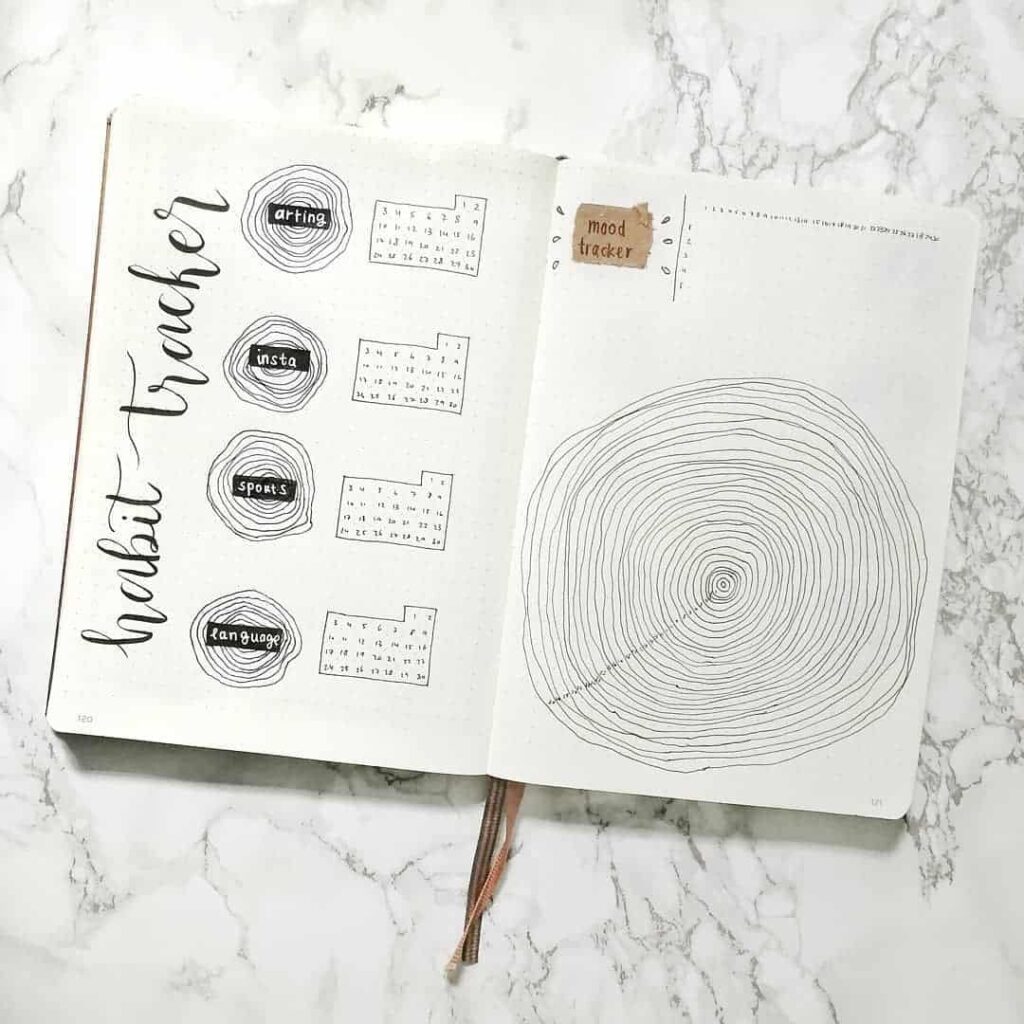 habit tracker
arting
1 2
3 4 5 6 7 8 9
10 11 12 13 14 15 16
17 18 19 20 21 22 23
24 25 26 27 28 29 30
insta
1 2
3 4 5 6 7 8 9
10 11 12 13 14 15 16
17 18 19 20 21 22 23
24 25 26 27 28 29 30
sports
1 2
3 4 5 6 7 8 9
10 11 12 13 14 15 16
17 18 19 20 21 22 23
24 25 26 27 28 29 30
language
1 2
3 4 5 6 7 8 9
10 11 12 13 14 15 16
17 18 19 20 21 22 23
24 25 26 27 28 29 30
120
mood
tracker
1
2
3
4
5
121